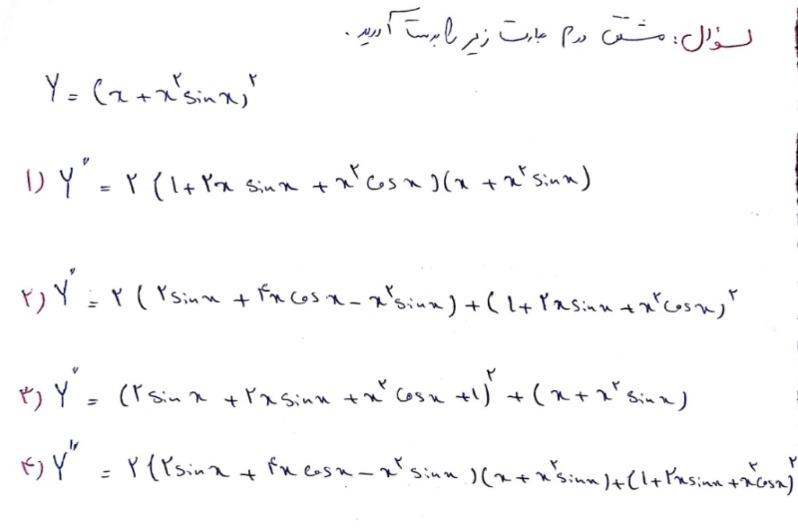 سؤال: مشتق دوم عبارت زیر را بدست آورید.
Y = (x + x^۲ sin x)^۲
۱) Y'' = ۲ (۱ + ۲x sin x + x^۲ cos x)(x + x^۲ sin x)
۲) Y'' = ۲ (۲ sin x + ۴x cos x - x^۲ sin x) + (۱ + ۲x sin x + x^۲ cos x)^۲
۳) Y'' = (۲ sin x + ۲x sin x + x^۲ cos x + ۱)^۲ + (x + x^۲ sin x)
۴) Y'' = ۲ (۲ sin x + ۴x cos x - x^۲ sin x)(x + x^۲ sin x) + (۱ + ۲x sin x + x^۲ cos x)^۲